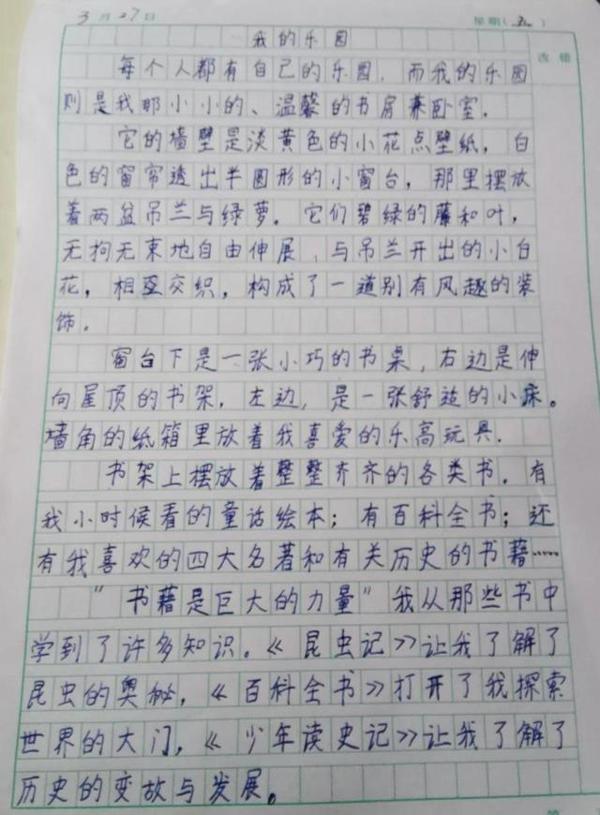 3月27日 星期(五)
改错
我的乐园
每个人都有自己的乐园,而我的乐园
则是我那小小的、温馨的书房兼卧室.
它的墙壁是淡黄色的小花点壁纸,白
色的窗帘透出半圆形的小窗台,那里摆放
着两盆吊兰与绿萝。它们碧绿的藤和叶,
无拘无束地自由伸展,与吊兰开出的小白
花,相互交织,构成了一道别有风趣的装
饰。
窗台下是一张小巧的书桌,右边是伸
向屋顶的书架,左边,是一张舒适的小床。
墙角的纸箱里放着我喜爱的乐高玩具.
书架上摆放着整整齐齐的各类书.有
我小时候看的童话绘本;有百科全书;还
有我喜欢的四大名著和有关历史的书籍……
"书籍是巨大的力量"我从那些书中
学到了许多知识。《昆虫记》让我了解了
昆虫的奥秘,《百科全书》打开了我探索
世界的大门,《少年读史记》让我了解了
历史的变故与发展。